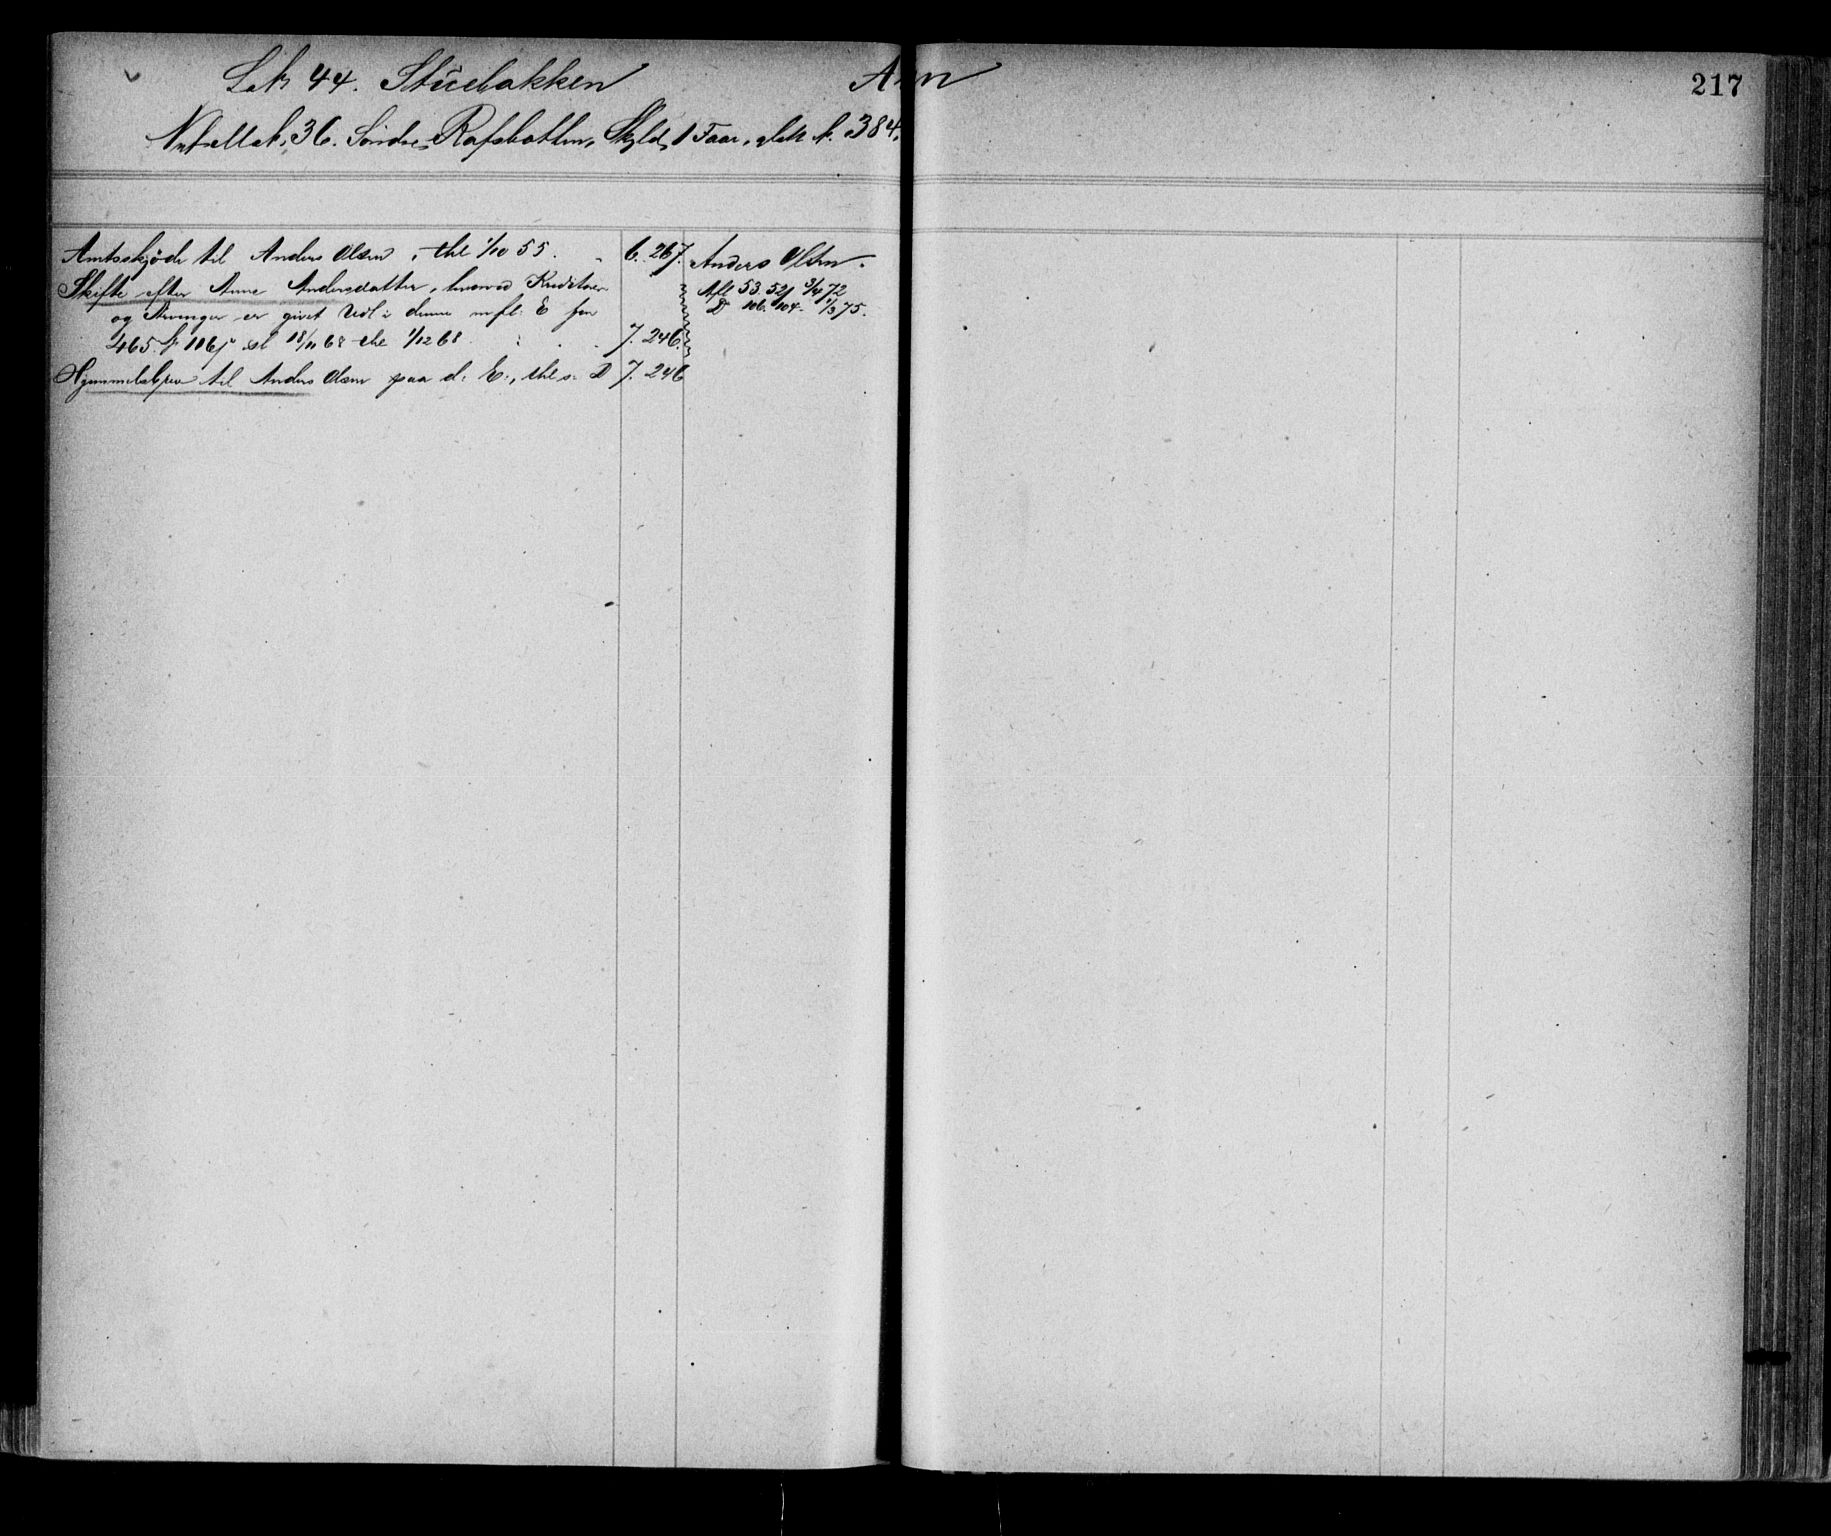 Lb 44. Stuebakken Ann 217
Mtrll. 36. Søndre Rafsbotten, Skyld, 1 Faar, 384.
Amtsskjøde til Anders Olsen, thl 1/10 55. 6. 267.
Skifte efter Anne Andersdatter, hvorved Kreditorer
og Arvinger er givet Udl i denne m fl. E for
465 11 6 18/11 68 thl 1/12 68 7. 246.
Hjemmelsbrev til Anders Olsen paa d: E:, thl s: D 7. 246
Anders Olsen.
Afl 53. 52 72
D 106. 104. 75.